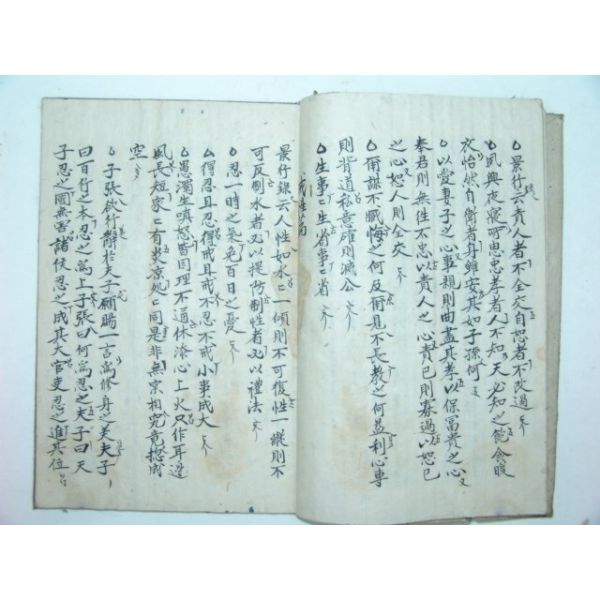 景行云責人者不全交自恕者不改過
夙興夜寢所思忠孝者人不知天必知之飽食煖
衣怡然自衛者身雖安其如子孫何
以愛妻子之心事親則曲盡其孝以保富貴之心
奉君則無往不忠以責人之心責己則寡過以恕己
之心恕人則全交
爾謀不臧悔之何及爾見不長教之何益利心專
則背道私意確則滅公
生事事生省事事省
戒性篇
景行錄云人性如水水一傾則不可復性一縱則不
可反制水者必以堤防制性者必以禮法
忍一時之氣免百日之憂
得忍且忍得戒且戒不忍不戒小事成大
愚濁生嗔怒皆因理不通休添心上火只作耳邊
風長短家家有炎凉處處同是非無實相究竟摠成
空
子張欲行辭於夫子願賜一言爲修身之美夫子
曰百行之本忍之爲上子張曰何爲忍之夫子曰天
子忍之國無害諸侯忍之成其大官吏忍之進其位